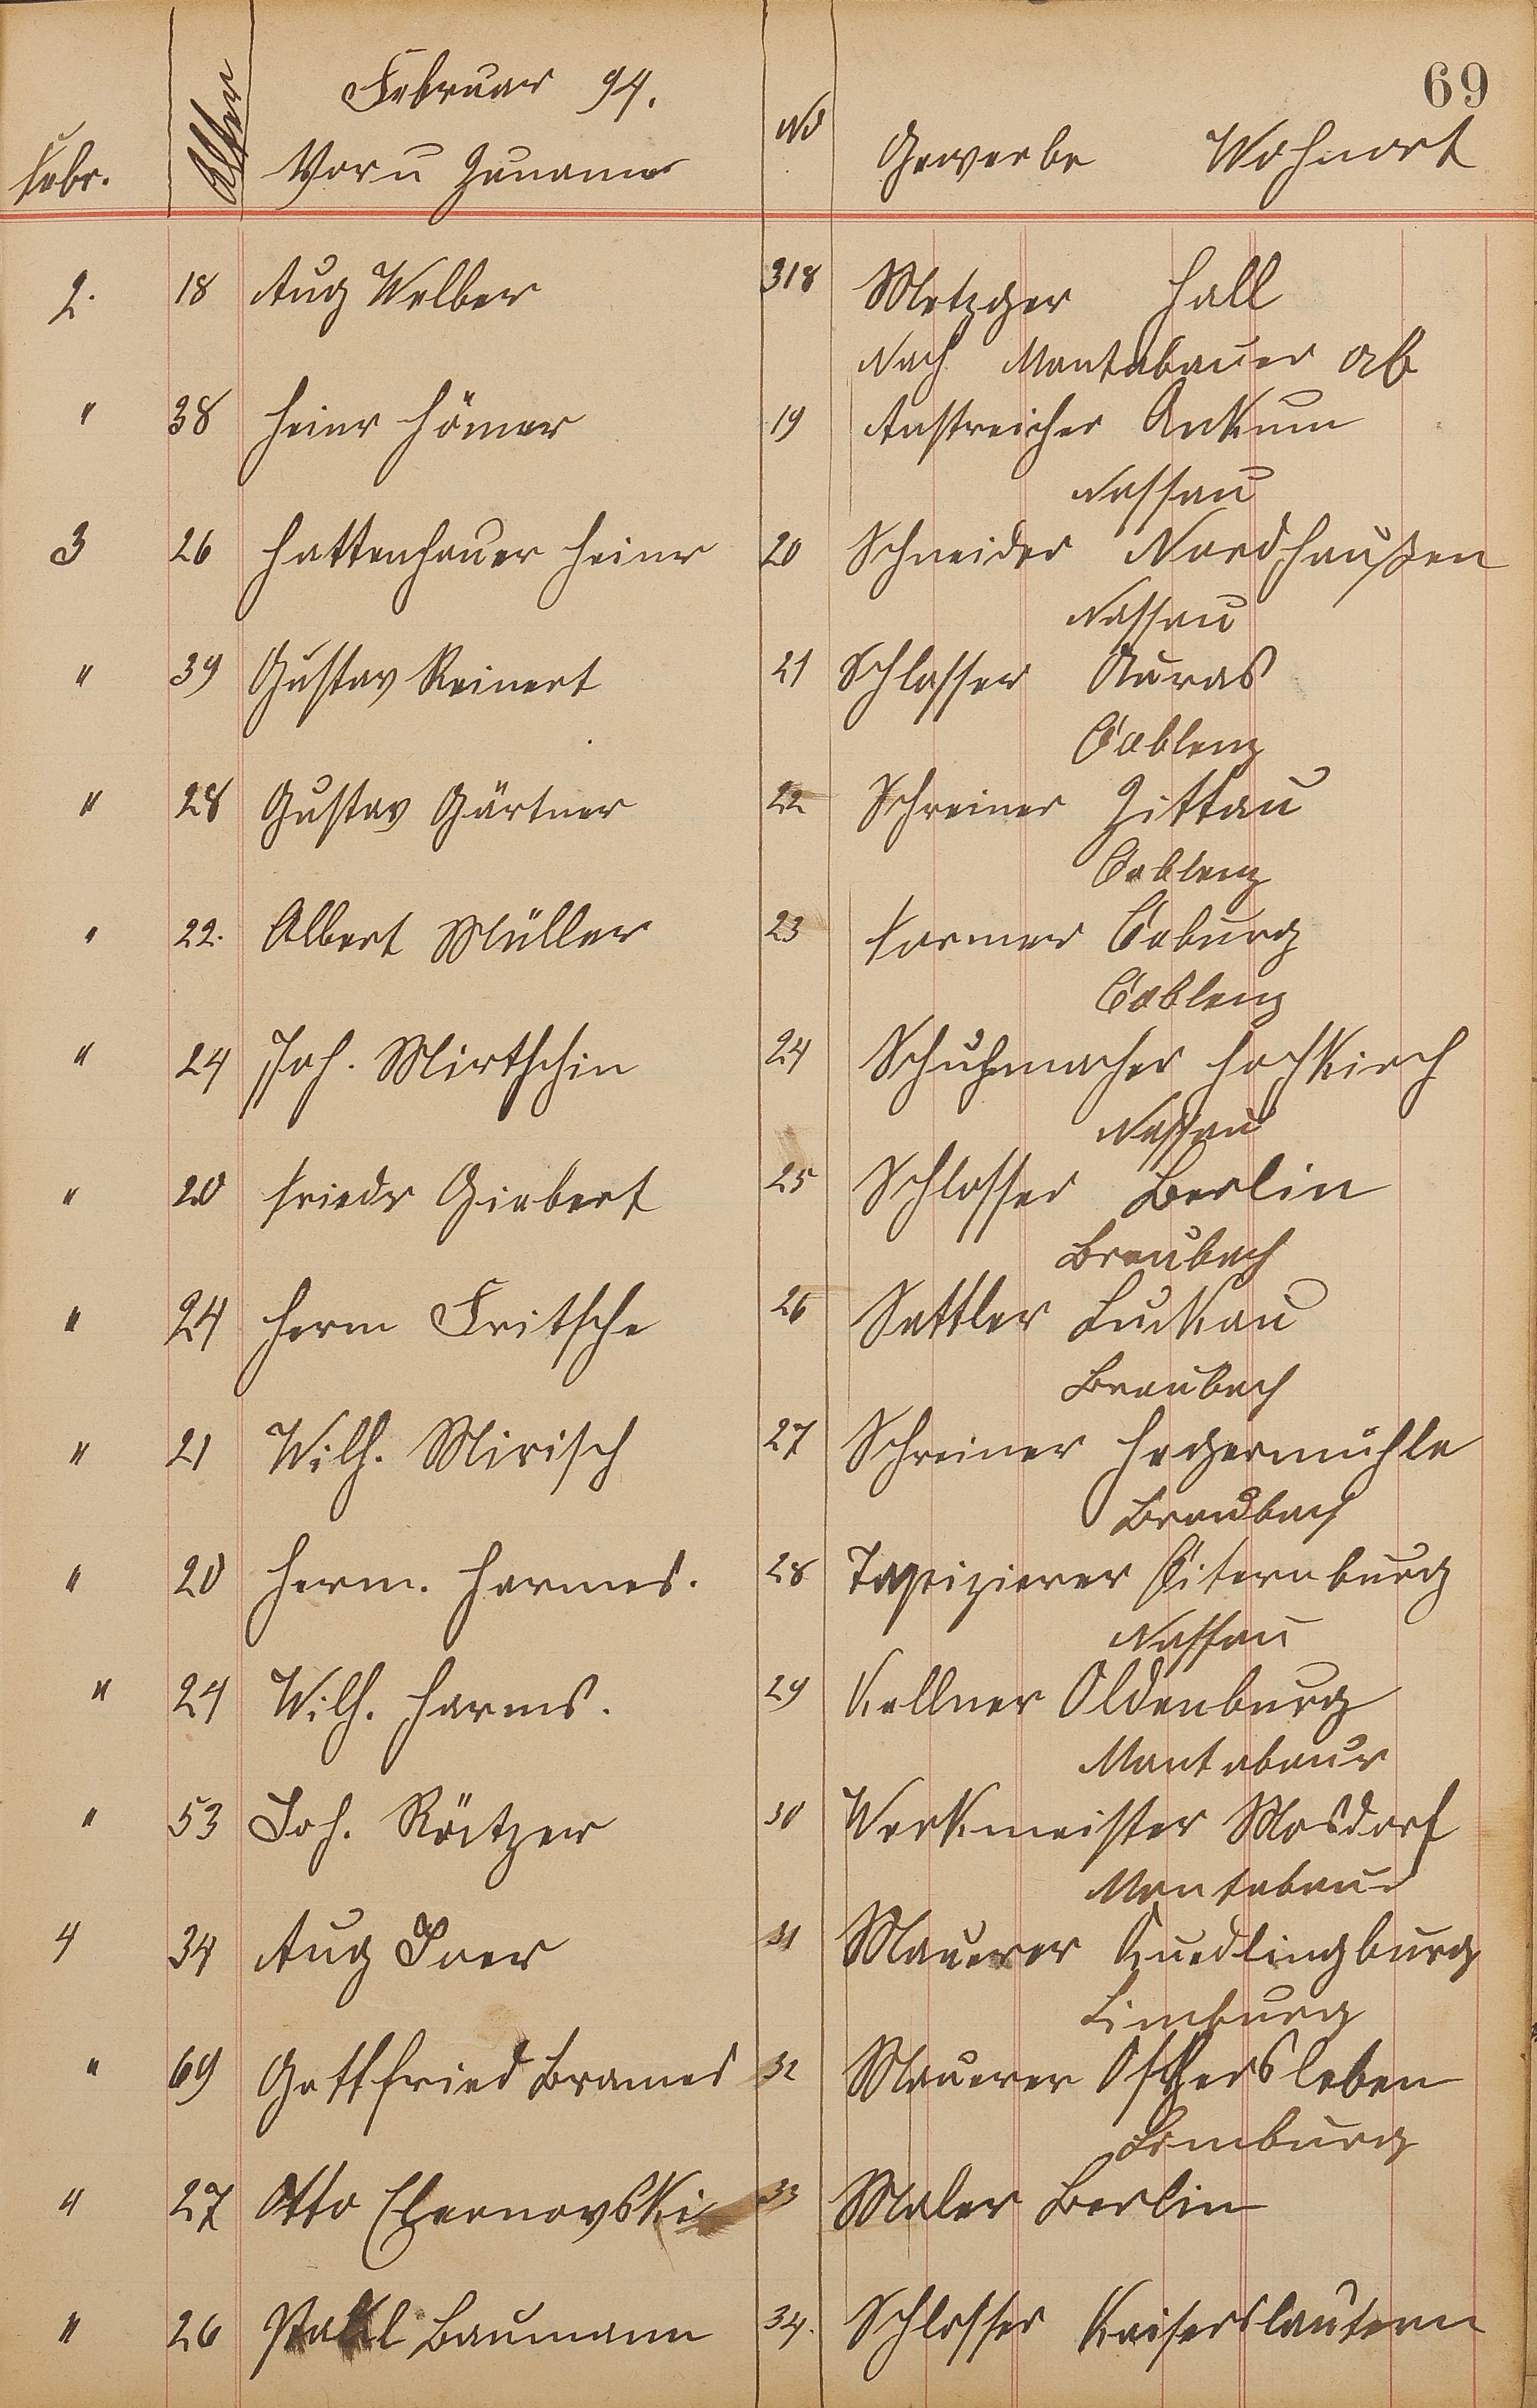 69
Februar 94.
Febr. Alter Vor u Zuname No Gewerbe Wohnort
2. 18 Aug Welber 318 Metzger Hall
Nach Montabauer ab
" 38 Heinr Hömer 19 Anstreicher Ankum
Nassau
3 26 Hattenhauer Heinr 20 Schneider Nordhaußen
Nassau
" 39 Gustav Reinert 21 Schlosser Auras
Coblenz
" 28 Gustav Gärtner 22 Schreiner Zittau
Coblenz
" 22. Albert Müller 23 Former Coburg
Coblenz
" 24 Joh. Mirtschin 24 Schuhmacher Hochkirch
Nassau
" 20 Friedr Giebert 25 Schlosser Berlin
Braubach
" 24 Herm Fritsche 26 Sattler Luckau
Braubach
" 21 Wilh. Mirisch 27 Schreiner Hegermühle
Braubach
" 20 Herm. Harmes. 28 Tapizierer
Nassau
" 24 Wilh. Harms. 29 Kellner Oldenburg
Montabaur
" 53 Joh. Röitzer 30 Werkmeister Mosdorf
Montabaur
4 34 Aug 31 Maurer Quedlingburg
Limburg
" 69 Gottfried Brames 32 Maurer Oschersleben
Limburg
" 27 Otto Czernovski 33 Maler Berlin
" 26 Paul Baumann 34. Schlosser Kaiserslautern